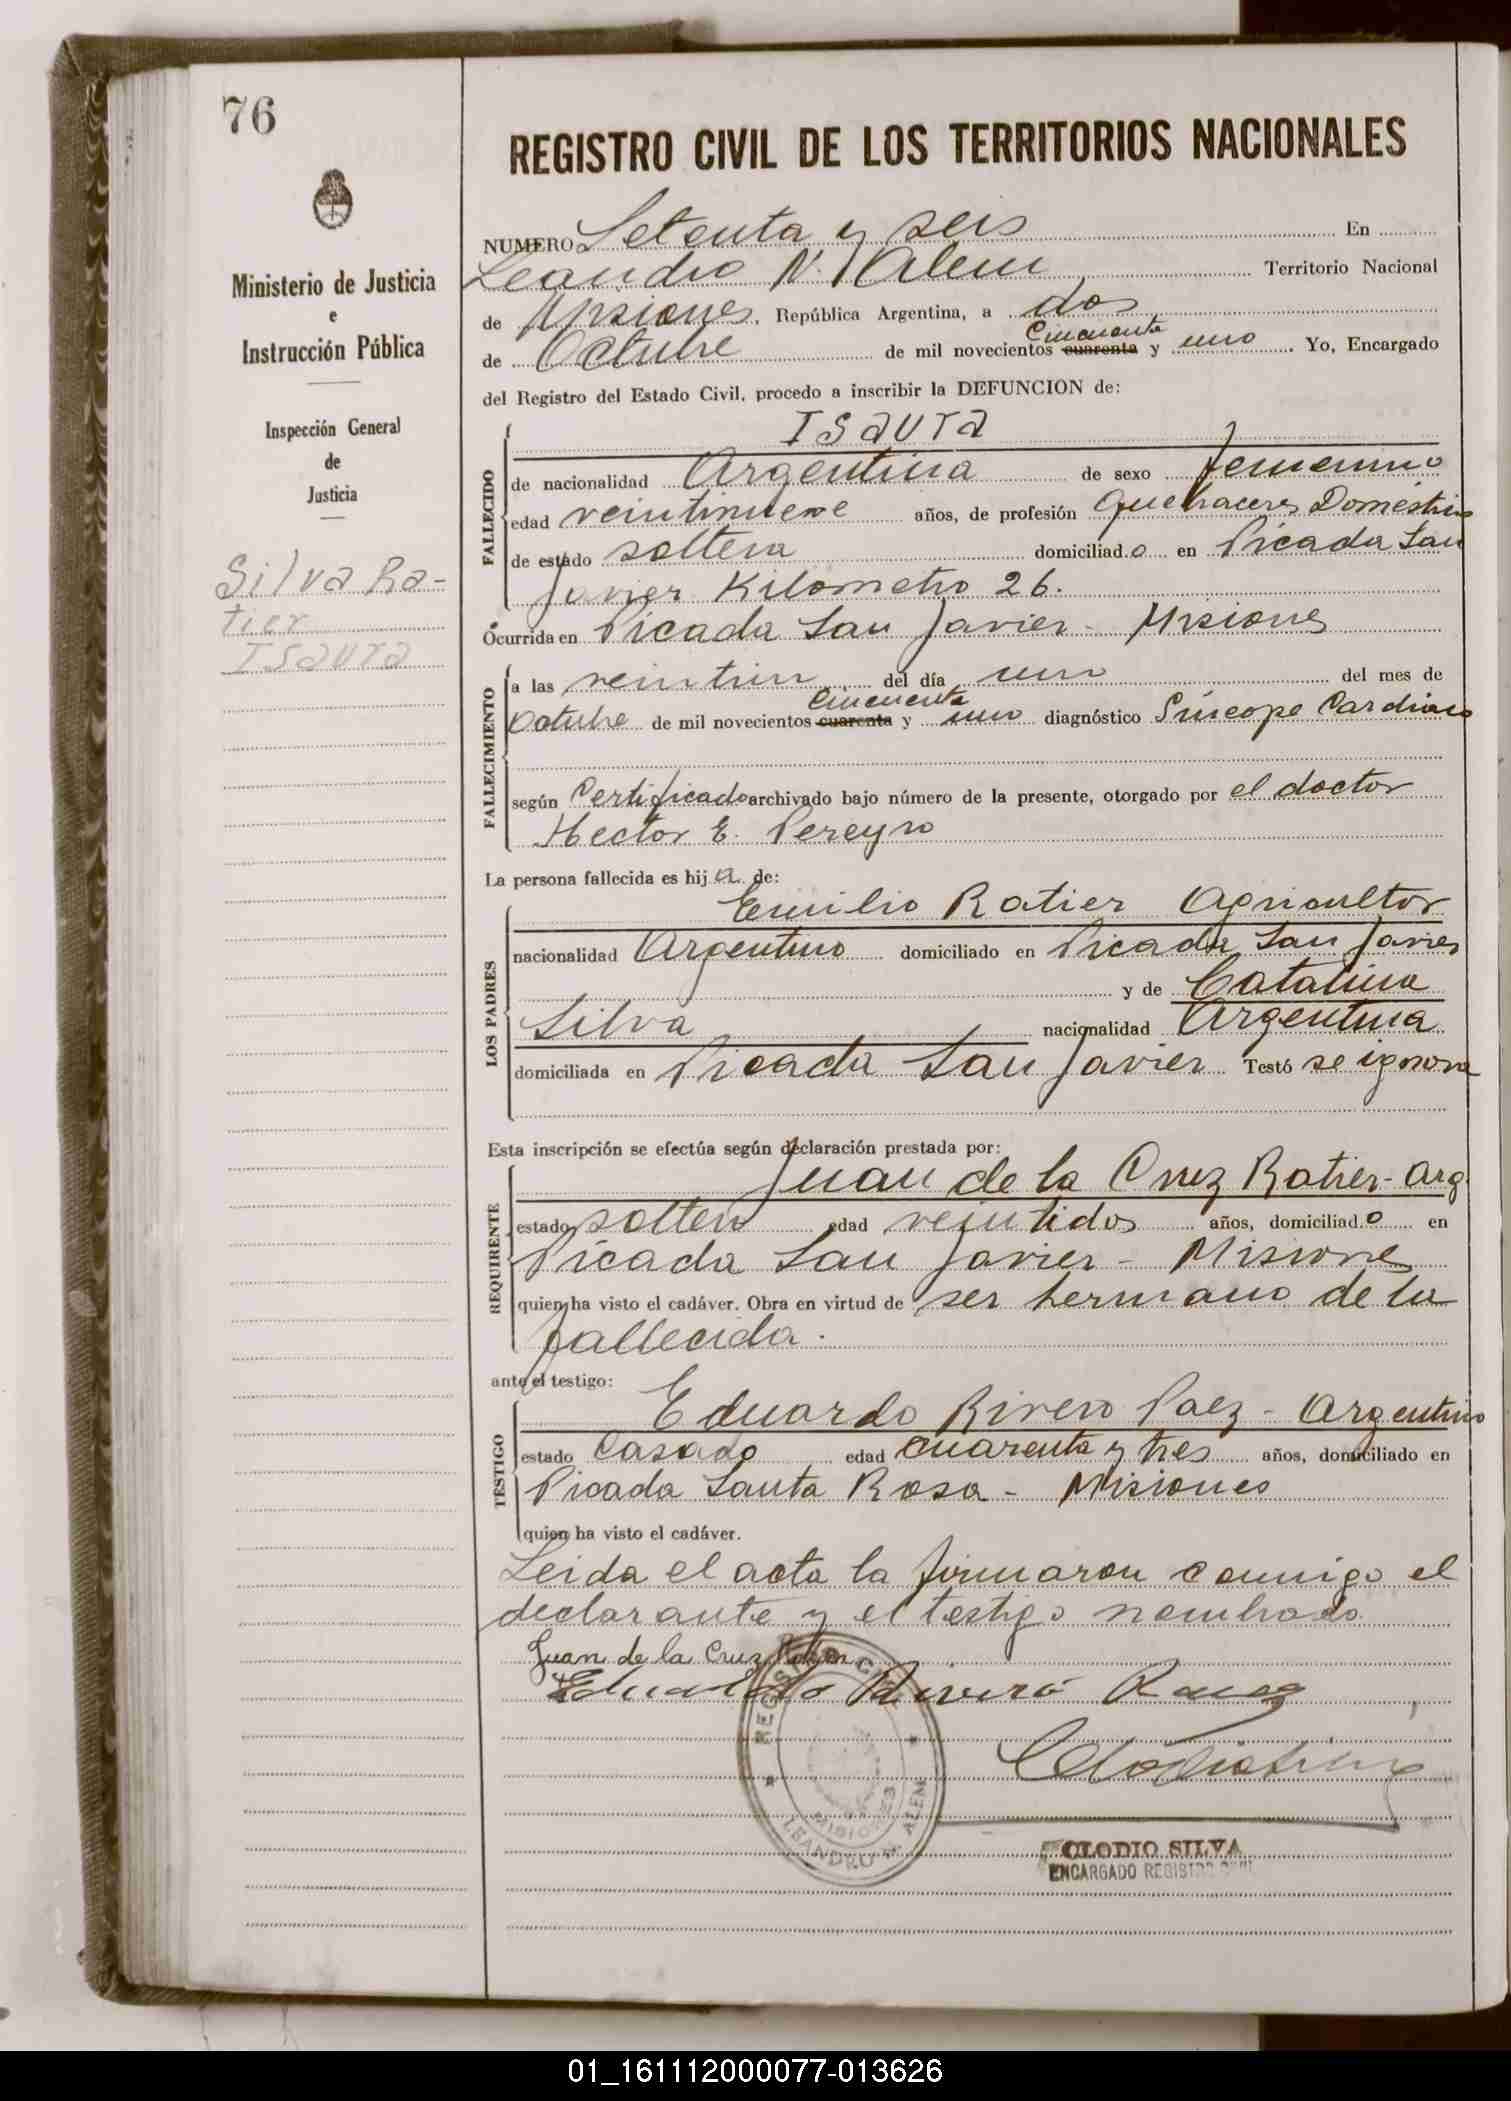 76
REGISTRO CIVIL DE LOS TERRITORIOS NACIONALES
Ministerio de Justicia
e
Instrucción Pública
Inspección General
de
Justicia
Silva Ra-
tier
Isaura
NUMERO Setenta y seis En
Leandro N. Alem Territorio Nacional
de Misiones, República Argentina, a dos
de Octubre de mil novecientos cuarenta Cincuenta y uno. Yo, Encargado
del Registro del Estado Civil, procedo a inscribir la DEFUNCION de:
Isaura
FALLECIDO
de nacionalidad Argentina de sexo femenino
edad veintinueve años, de profesión Quehaceres Domésticos
de estado soltera domiciliad.o en Picada San
Javier Kilometro 26.
Ocurrida en Picada San Javier - Misiones
FALLECIMIENTO
a las veintiun del día uno del mes de
Octubre de mil novecientos cuarenta Cincuenta y uno diagnóstico Síncope Cardiaco
según Certificado archivado bajo número de la presente, otorgado por el doctor
Hector E. Pereyro
La persona fallecida es hij a de:
LOS PADRES
Emilio Ratier Agricultor
nacionalidad Argentino domiciliado en Picada San Javier
y de Catalina
Silva nacionalidad Argentina
domiciliada en Picada San Javier Testó se ignora
Esta inscripción se efectúa según declaración prestada por:
REQUIRENTE
Juan de la Cruz Ratier - Arg.
estado soltero edad veintidos años, domiciliad.o en
Picada San Javier - Misione
quien ha visto el cadáver. Obra en virtud de ser hermano de la
fallecida.
ante el testigo:
TESTIGO
Eduardo Rivero Paez - Argentino
estado Casado edad cuarenta y tres años, domiciliado en
Picada Santa Rosa - Misiones
quien ha visto el cadáver.
Leida el acta la firmaron conmigo el
declarante y el testigo nombrado
Juan de la Cruz Ratier
Eduardo Rivero
REGISTRO CIVIL
MISIONES
LEANDRO N. ALEM
CLODIO SILVA
ENCARGADO REGISTRO CIVIL
01_161112000077-013626